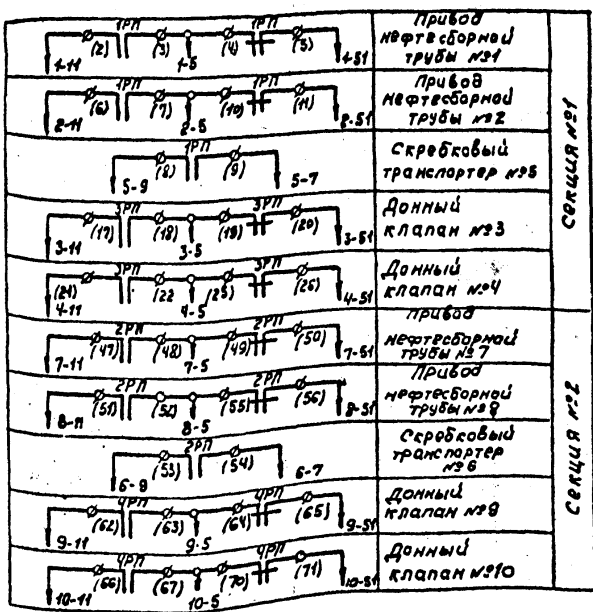 1РП 1РП
(2) (3) (4) (5)
1-11 1-5 1-51
Привод
нефтесборной
трубы №1
1РП 1РП
(6) (7) (10) (11)
2-11 2-5 2-51
Привод
нефтесборной
трубы №2
1РП
(8) (9)
5-9 5-7
Скребковый
транспортер №5
3РП 3РП
(17) (18) (19) (20)
3-11 3-5 3-51
Донный
клапан №3
3РП 3РП
(21) (22 (25) (26)
4-11 4-5 4-51
Донный
клапан №4
СЕКЦИЯ №1
2РП 2РП
(47) (48) (49) (50)
7-11 7-5 7-51
Привод
нефтесборной
трубы №7
2РП 2РП
(51) (52) (55) (56)
8-11 8-5 8-51
Привод
нефтесборной
трубы №8
2РП
(53) (54)
6-9 6-7
Скребковый
транспортер
№6
4РП 4РП
(62) (63) (64) (65)
9-11 9-5 9-51
Донный
клапан №9
4РП 4РП
(66) (67) (70) (71)
10-11 10-5 10-51
Донный
клапан №10
СЕКЦИЯ №2